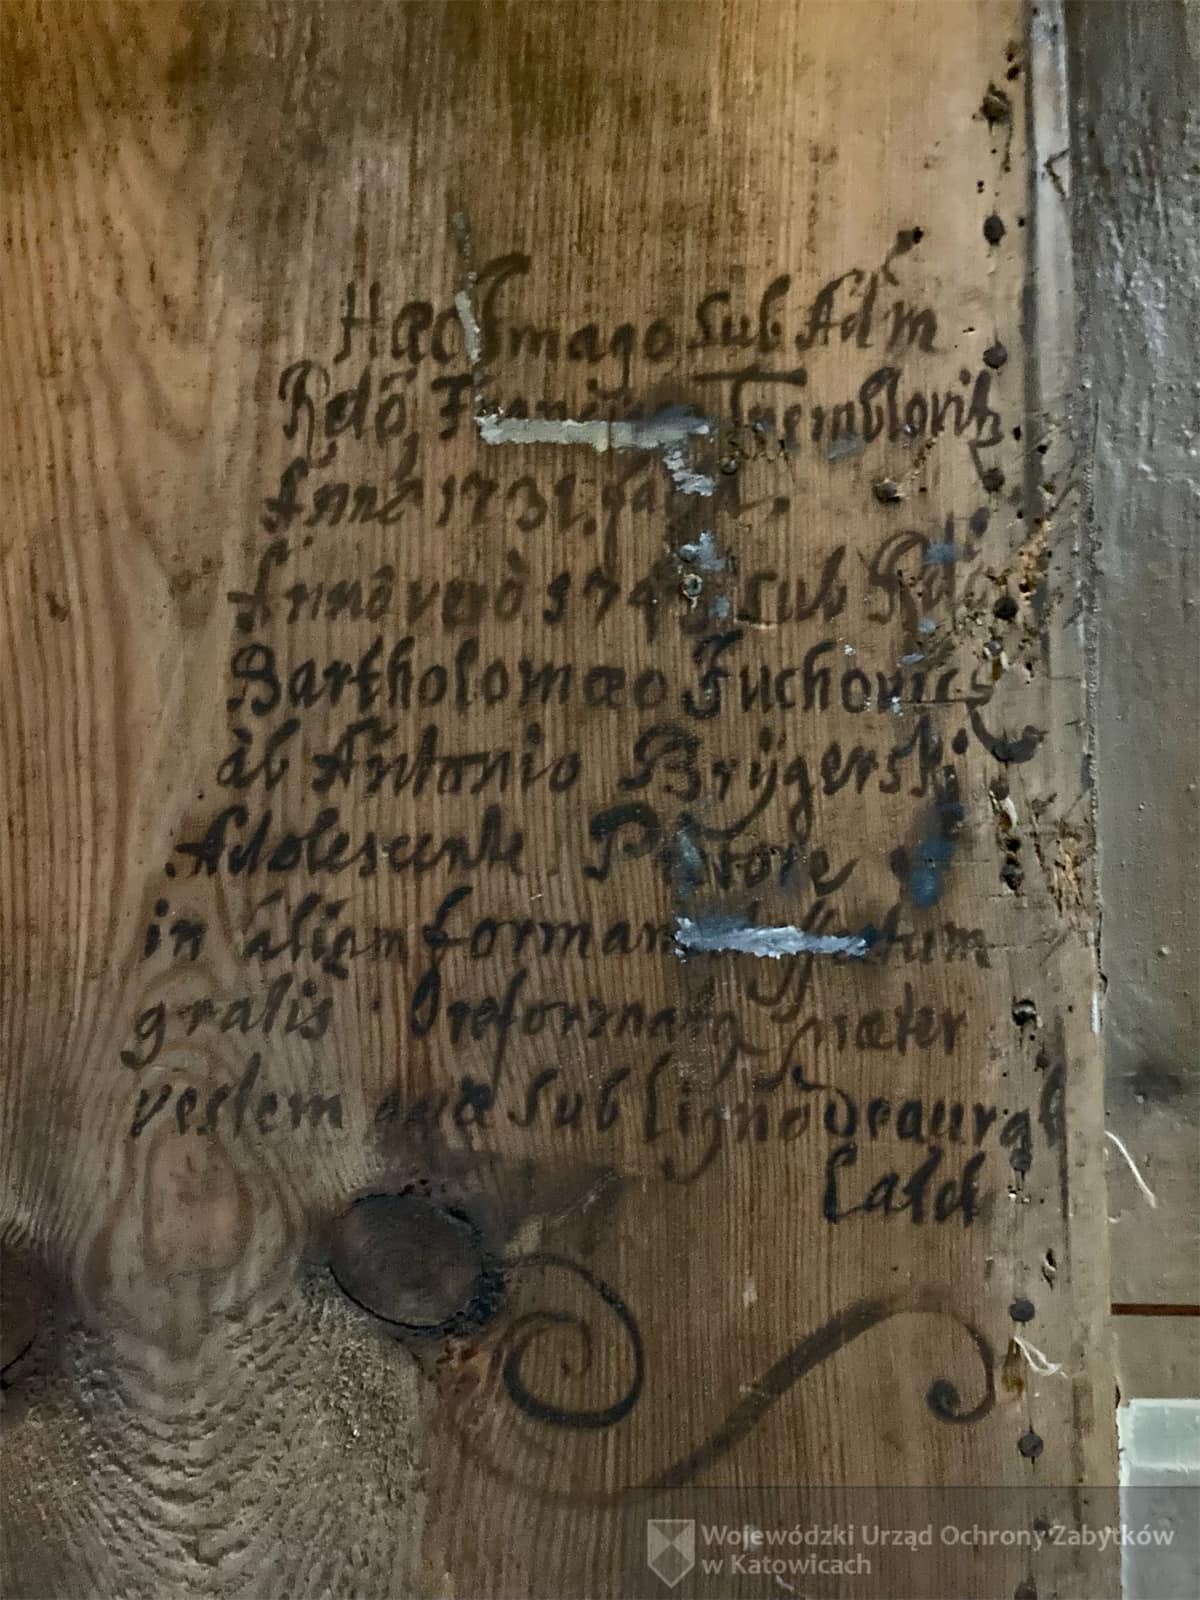 Haec Imago sub Adm
Rdo, Tremblovitz
Anno 1731.
Anno vero sub Rdo
Bartholomaeo Fuchovics
ab Antonio Brÿgerski
Adolescente Pictore
in aliam formam
gratis reformata praeter
vestem quae sub ligno deaurat
Wojewódzki Urząd Ochrony Zabytków
w Katowicach